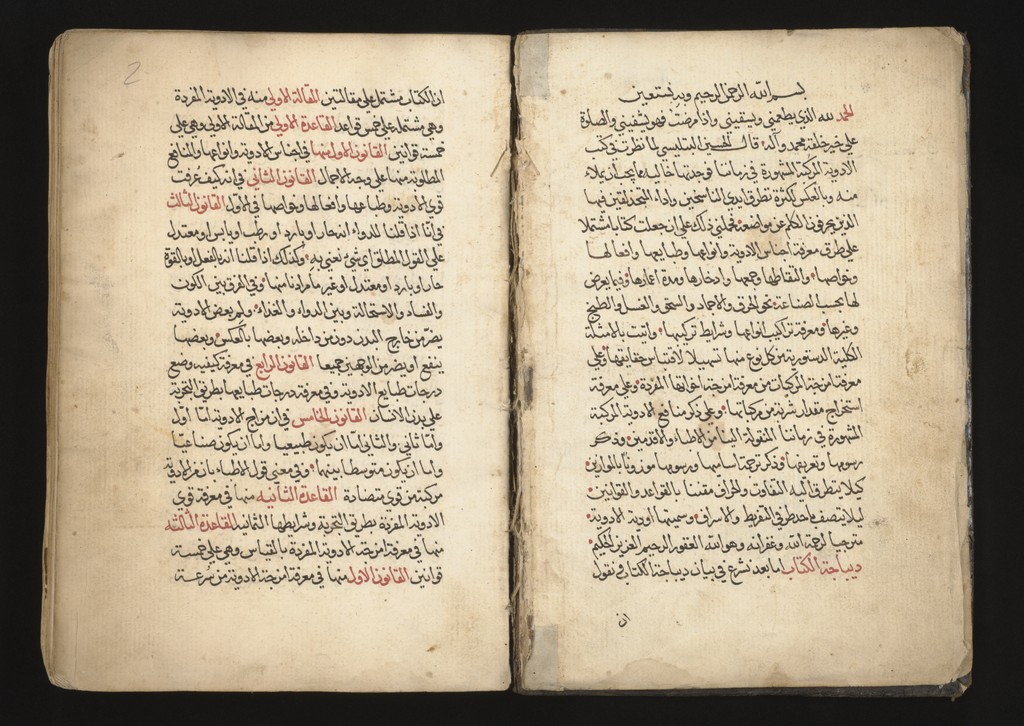 بسم الله الرحمن الرحيم وبه نستعين
الحمد لله الذي يطعمني ويسقيني واذا مرضت فهو يشفيني والصلوة
على خير خلقه محمد وآله قال الحسين لما نظرت في كتب
الادوية المركبة المشهورة في زماننا فوجدتها خالية عما يجب ان يملاء
منه وبالعكس لكثرة تطرق ايدي الناسخين واداء المتحذلقين فيها
الذين يحرفون الكلم عن مواضعه فحملني ذلك على ان جعلت كتابا مشتملا
على طرق معرفة اجناس الادوية وانواعها وطبايعها وافعالها
وخواصها والتقاطها وجمعها وادخارها ومدة اعمارها وفيما يعرض
لها بحسب الصناعة نحو الحرق والاجماد والسحق والغسل والطبخ
وغيرها ومعرفة تراكيب انواعها وشرايط تركيبها واتيت بالامثلة
الكلية الدستورية من كل نوع منها تسهيلا لاقتباس حقايقها وعلى
معرفة امزجة المركبات من معرفة امزجة اخلاطها المفردة وعلى معرفة
استخراج مقدار شربة من مركباتها وعلى ذكر منافع الادوية المركبة
المشهورة في زماننا المنقولة الينا من الاطباء والاقدمين وذكر
رسومها وتعريفها وذكر ترجمة اساميها ورسومها موزونا بالموازين
كيلا يتطرق اليه التفاوت والجزاف مقننا بالقواعد والقوانين
ليلا يتصف باحد طرفي التفريط والاسراف وسميتها ادوية الادوية
مترجيا لرحمة الله وغفرانه وهو الله الغفور الرحيم العزيز الحكيم
ديباجة الكتاب اما بعد نشرع في بيان ديباجة الكتاب ونقول
ان
2
ان الكتاب مشتمل على مقالتين المقالة الاولى منه في الادوية المفردة
وهي مشتملة على خمس قواعد القاعدة الاولى من المقالة الاولى وهي على
خمسة قوانين القانون الاول منها في اجناس الادوية وانواعها والمنافع
المطلوبة منها على وجه الاجمال القانون الثاني في انه كيف عرفت
قوى الادوية وطباعها وافعالها وخواصها في الاول القانون الثالث
في انا اذا قلنا للدواء انه حار او بارد او رطب او يابس او معتدل
على القول المطلق اي شيء نعني به وكذلك اذا قلنا انه بالفعل او بالقوة
حار او بارد او معتدل او غير ما مرادنا منها وفي الفرق بين الكون
والفساد والاستحالة وبين الدواء والغذاء ولم بعض الادوية
يضر من خارج البدن دون من داخله وبعضها بالعكس وبعضها
ينفع او يضر من الوجهين جميعا القانون الرابع في معرفة كيفيه وضع
درجات طبايع الادوية وفي معرفة درجات طبايعها بطريق التجربة
على بدن الانسان القانون الخامس في ان مزاج الادوية اما اول
واما ثاني والثاني اما ان يكون طبيعيا واما ان يكون صناعيا
واما ان يكون متوسطا بينهما وفي معنى قول الاطباء بان من الادوية
مركبة من قوى متضادة القاعدة الثانيه منها في معرفة قوى
الادوية المفردة بطريق التجربة وشرايطها الثمانية القاعدة الثالثة
منها في معرفة امزجة الادوية المفردة بالقياس وهي على خمسة
قوانين القانون الاول منها في معرفة امزجة الادوية من سرعة